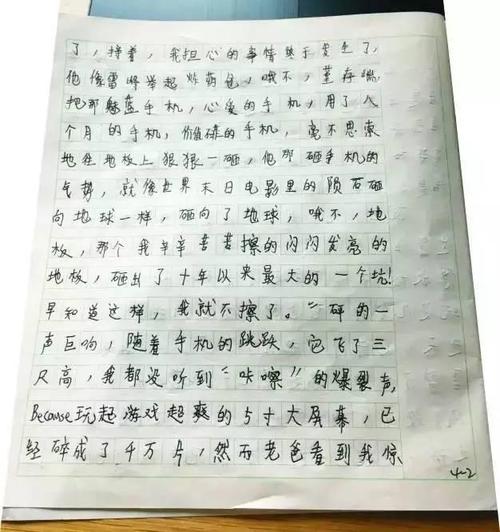 了，接着，我担心的事情终于发生了，
他像雷峰举起炸药包，哦不，董存瑞，
把那魅蓝手机，心爱的手机，用了八
个月的手机，价值碌的手机，毫不思索
地往地板上狠狠一砸，他那砸手机的
气势，就像世界末日电影里的陨石砸
向地球一样，砸向了地球，哦不，地
板，那个我辛辛苦苦擦的闪闪发亮的
地板，砸出了十年以来最大的一个坑!
早知道这样，我就不擦了。"砰的一
声巨响，随着手机的跳跃，它飞了三
尺高，我都没听到"咔嚓"的爆裂声，
Because玩起游戏超爽的5寸大屏幕，已
经碎成了千万片，然而老爸看到我惊
4-2